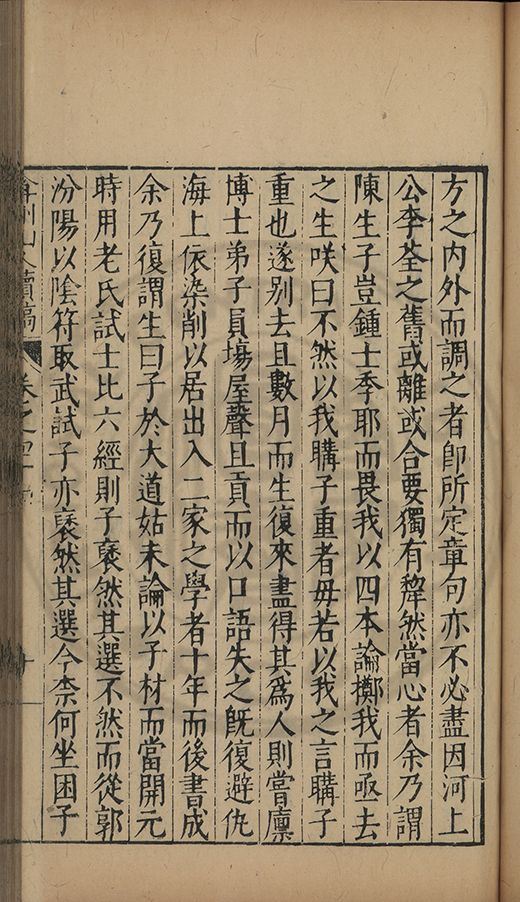 方之內外而調之者卽所定章句亦不必盡因河上
公李荃之舊或離或合要獨有犂然當心者余乃謂
陳生子豈鍾士季耶而畏我以四本論擲我而亟去
之生咲曰不然以我購子重者毋若以我之言購子
重也遂别去且數月而生復來盡得其爲人則嘗廪
博士弟子員塲屋聲且貢而以口語失之旣復避仇
海上依染削以居出入二家之學者十年而後書成
余乃復謂生曰子於大道姑未論以子材而當開元
時用老氏試士比六經則子褎然其選不然而從郭
汾陽以陰符取武試子亦褎然其選今柰何坐困子
山人續稿 卷之四